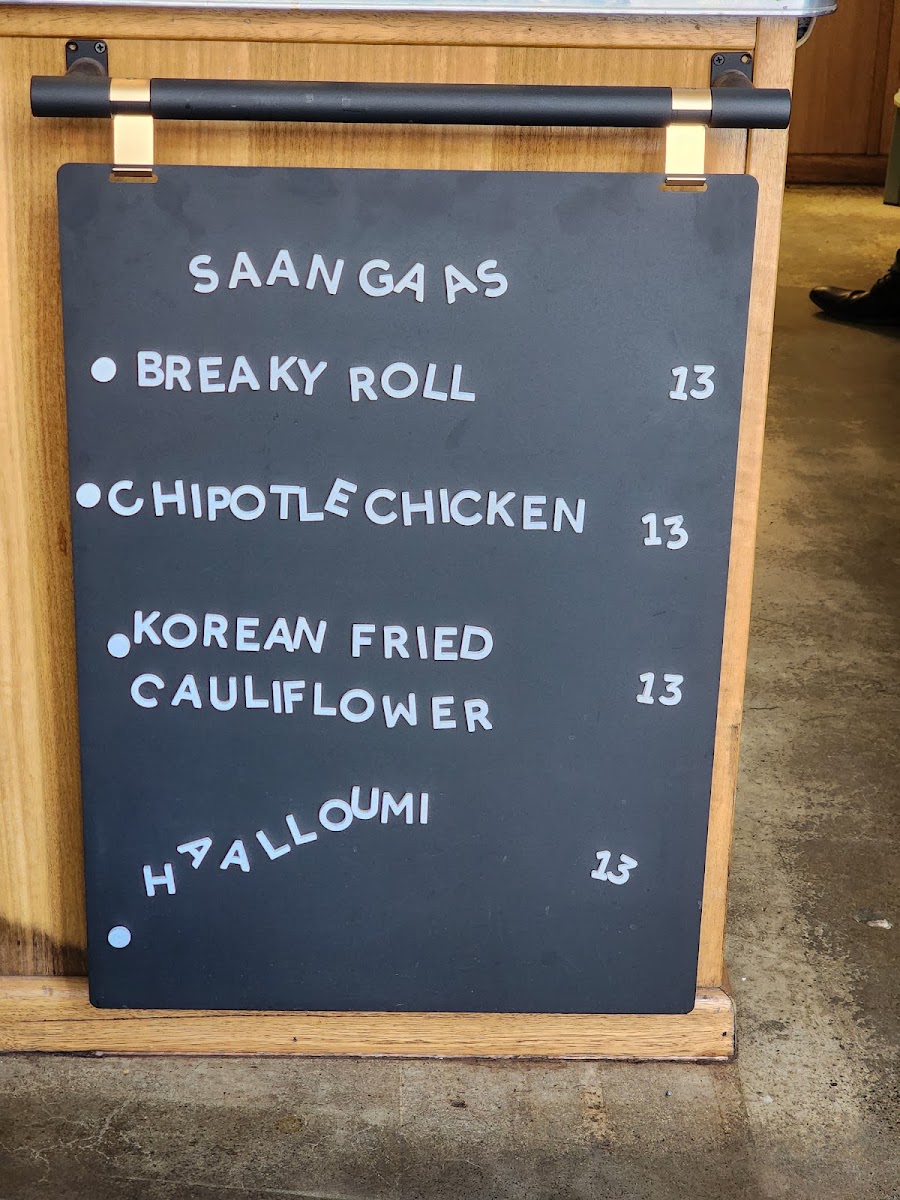 SAANGAAS
BREAKY ROLL 13
CHIPOTLE CHICKEN 13
KOREAN FRIED
CAULIFLOWER 13
HAALLOUMI 13